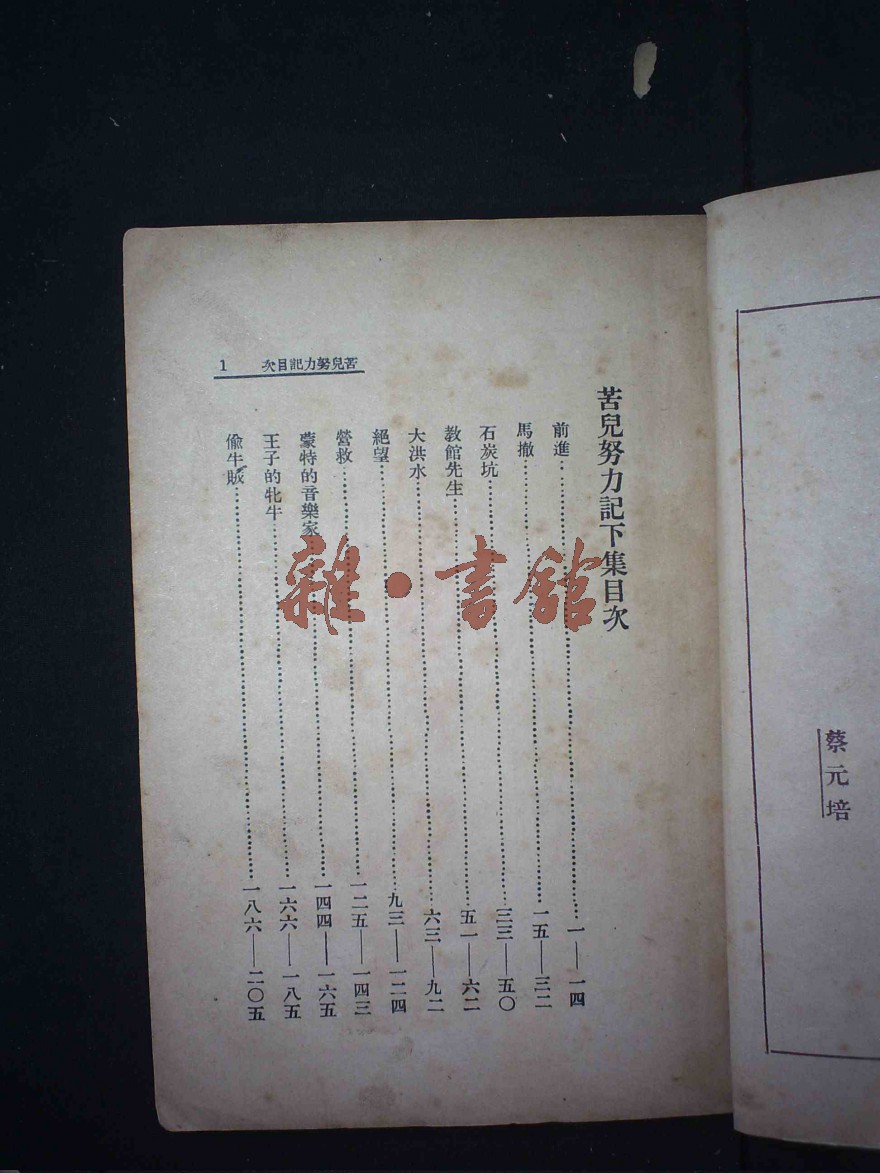 蔡元培
苦兒努力記目次 1
苦兒努力記下集目次
前進……一——一四
馬撤……一五——三二
石炭坑……三三——五〇
教館先生……五一——六二
大洪水……六三——九二
絕望……九三——一二四
營救……一二五——一四三
蒙特的音樂家……一四四——一六五
王子的牝牛……一六六——一八五
偸牛賊……一八六——二〇五
雜·書館